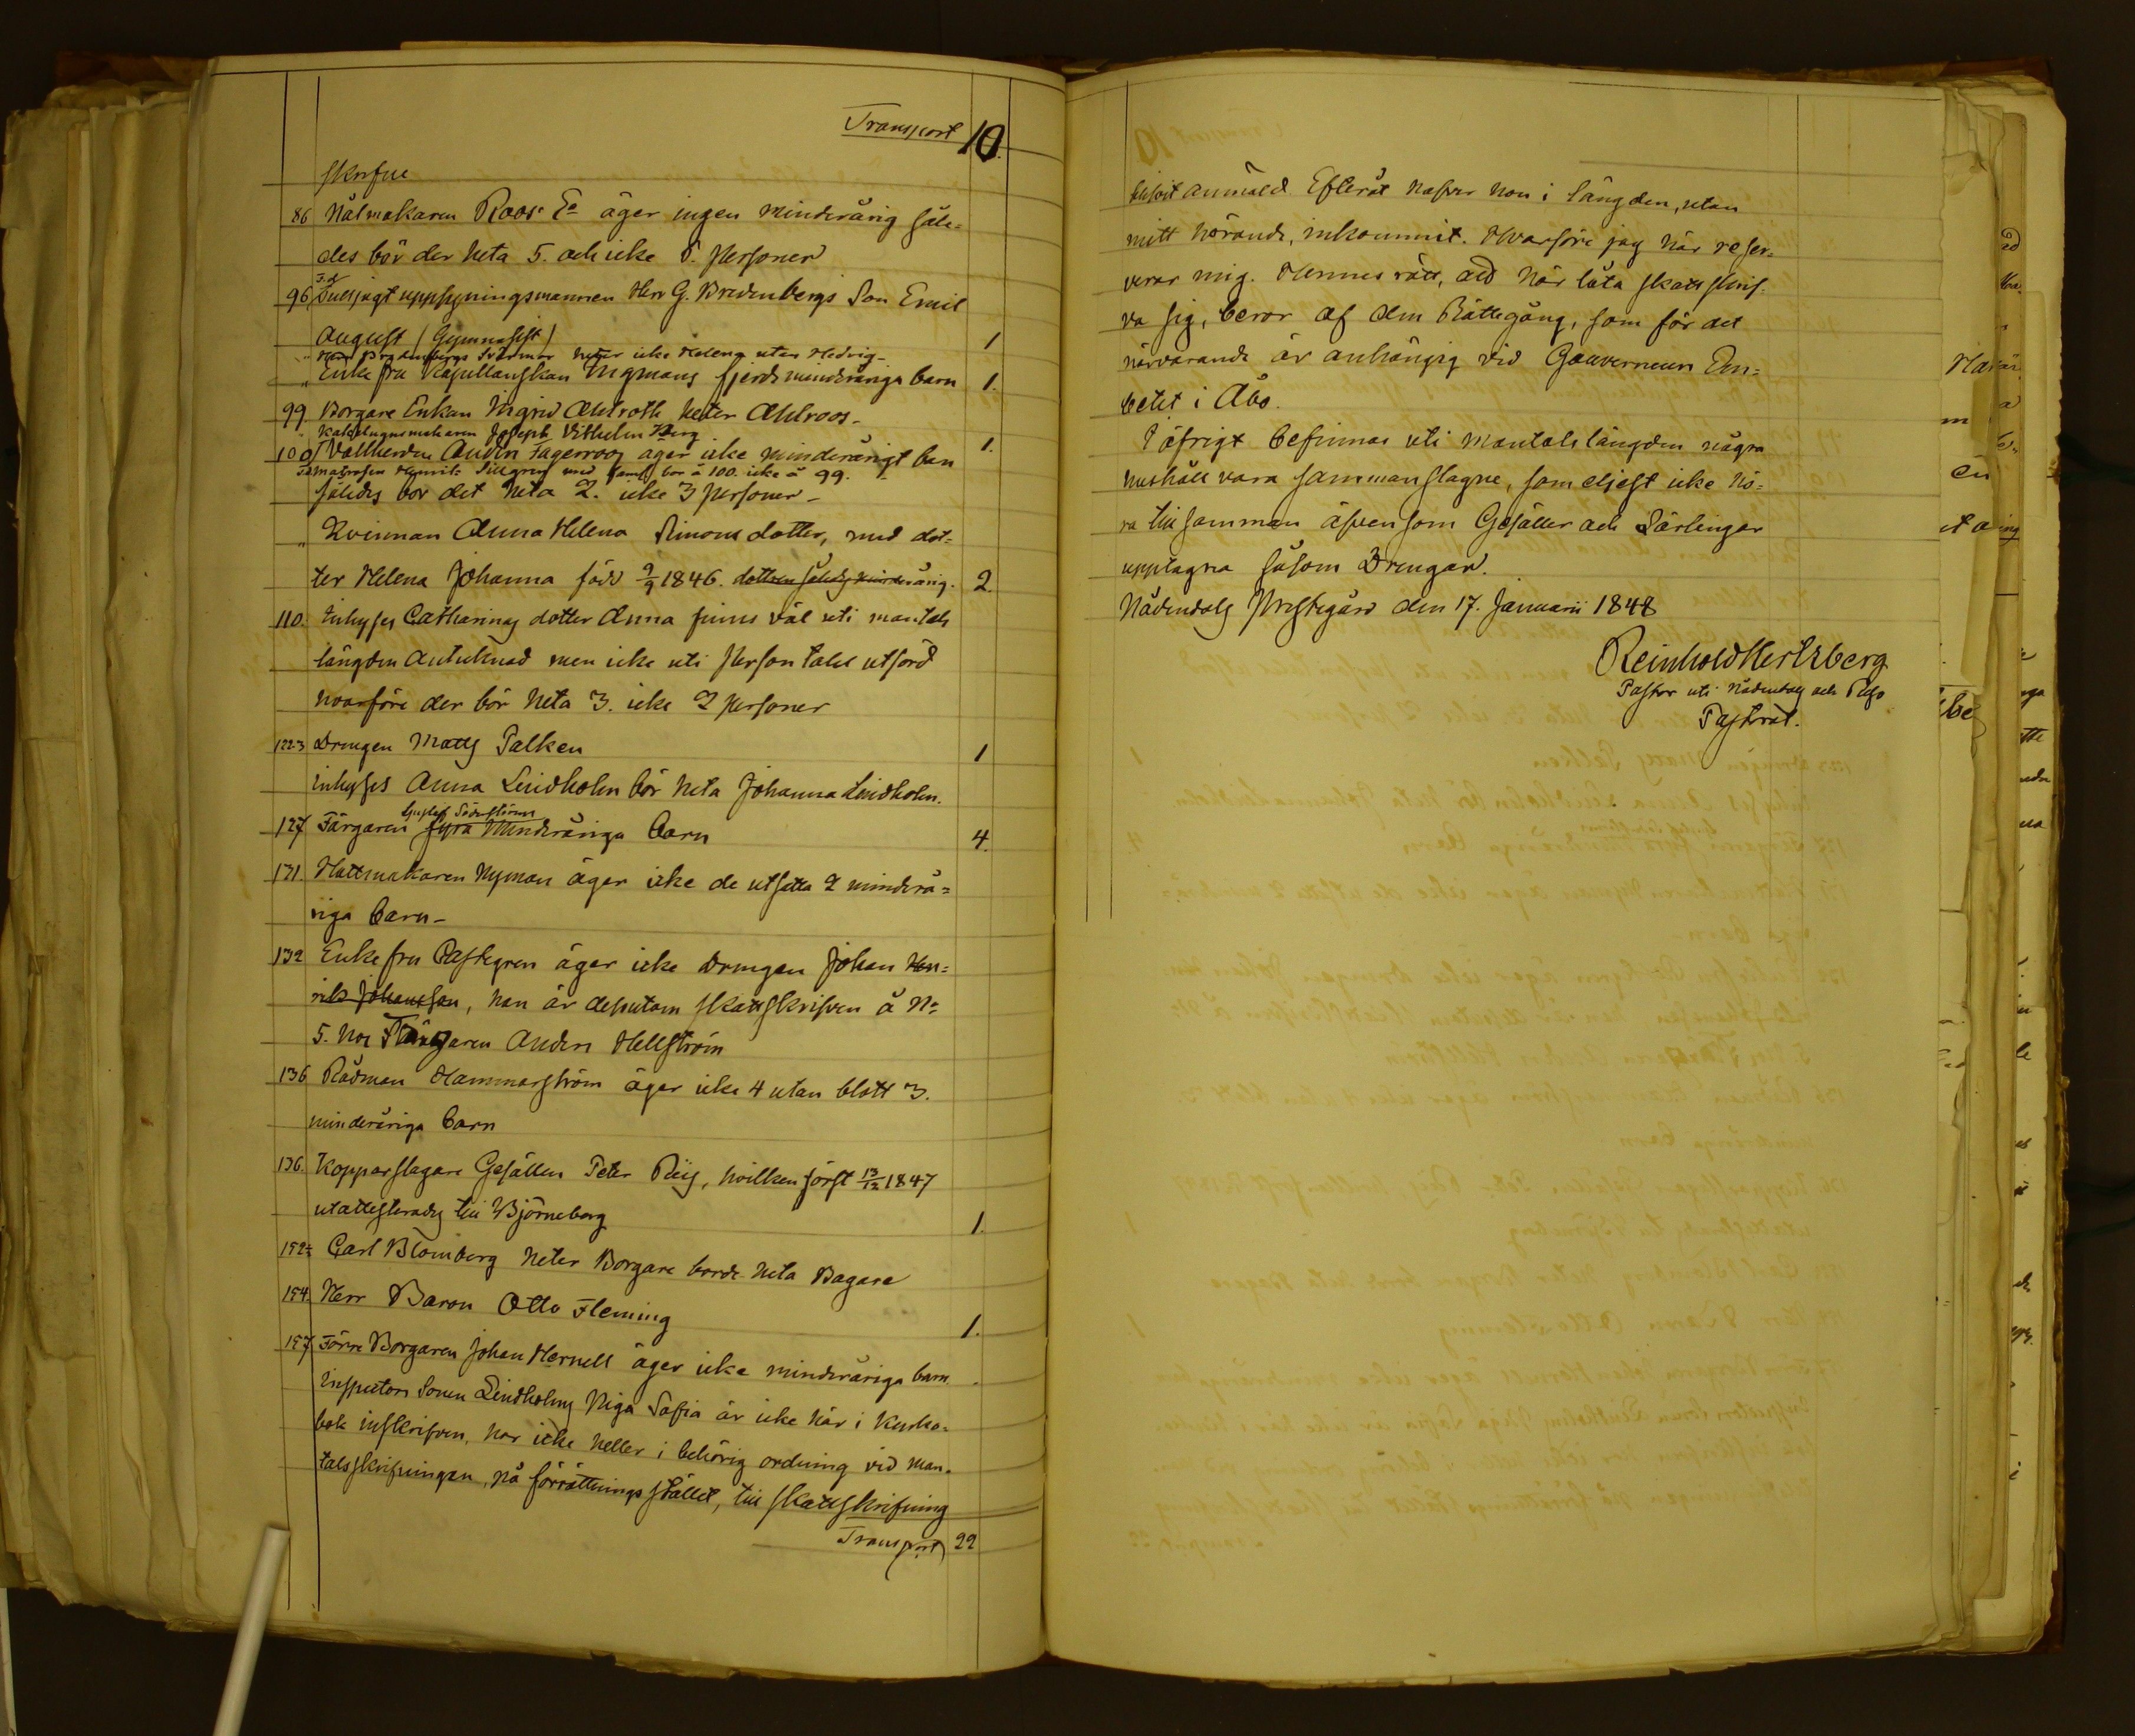 Transport 10.
skrefne
86 Nålmakaren Roos Eª äger ingen minderårig såle-
des bör der heta 5. och icke 6. personer
96 F.d. Tulljagt uppsyningsmannen Herr G. Bredenbergs Son Emil
August (Gymnasist) 1
" Herr Bredenbergs Svärmor heter icke Helena utan Hedvig-
" Enke fru Kapellanskan Ingmans fjerde minderåriga barn 1.
99. Borgare Enkan Ingrid Ahlroth heter Ahlroos-
" Kakelugnsmakaren Joseph Vilhelm Berg 1.
100 Vallherden Anders Fagerroos äger icke minderårigt barn
Matrosen Henrik Sillgren med famil bor å 100. icke å 99.
således bör det heta 2. icke 3 personer-
" Qvinnan Anna Helena Simonsdotter, med dot-
ter Helena Johanna född 9/9 1846. dottren således minderårig. 2.
110. Inhyses Catharinas dotter Anna finns väl uti mantals
längden antecknad men icke uti persontalet utförd
hvarföre der bör heta 3. icke 2 personer
122-3 Drengen Matts Palken 1
inhyses Anna Lindholm bör heta Johanna Lindholm.
Gustaf Söderström
127 Färgaren fyra minderåriga barn 4.
131. Hattmakaren Nyman äger icke de utsatta 2 minderå-
riga barn-
132 Enke fru Castegren äger icke drengen Johan Hen-
rik Johansson, han är dessutom skattskrifven å Nº
5. hos Färgaren Anders Hellström
136 Rådman Hammarström äger icke 4 utan blott 3.
minderåriga barn
136. Kopparslagare Gesällen Peter Riis, hvilken först 13/12 1847
utattesterades till Björneborg 1.
152½ Carl Blomberg heter Borgare borde heta Bagare
154. Herr Baron Otto Fleming 1.
157 Förra Borgaren Johan Hernell äger icke minderåriga barn
Inspectors Sonen Lindholms Piga Sofia är icke här i Kyrko-
bok inskrifven, har icke heller i behörig ordning vid man-
talsskrifningen, på förrättnings stället, till skattskrifning
Transport 22
blifvit anmäld. Efteråt hafver hon i längden, utan
mitt hörande, inkommit. Hvarföre jag här reser-
verar mig. Hennes rätt, att här låta skattskrif-
va sig, beror af den Rättegång, som för det
närvarande är anhängig vid Gouverneurs Em-
betet i Åbo.
I öfrigt befinnas uti mantalslängden några
hushåll vara sammanslagne, som eljest icke hö-
ra till samman äfvensom Gesäller och Lärlingar
upptagna såsom Drengar.
Nådendals Prestegård den 17. Januarii 1848
Reinhold Hertzberg
Pastor uti Nådendals och Reso
Pastorat.